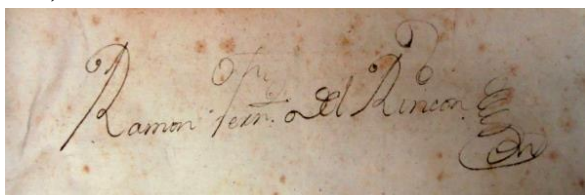 Ramon Fern. Del Rincon